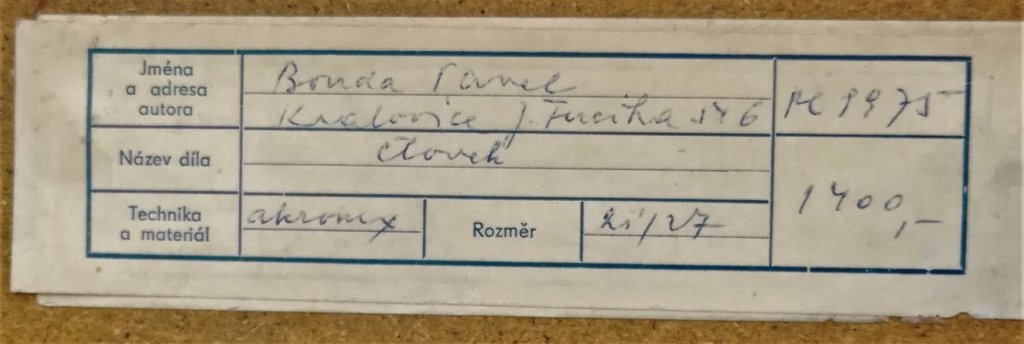 Jména
a adresa
autora
Bouda Pavel
Kralovice J. Fučíka 546
M 9975
Název díla
člověk
1400,-
Technika
a materiál
akronex
Rozměr
21/27